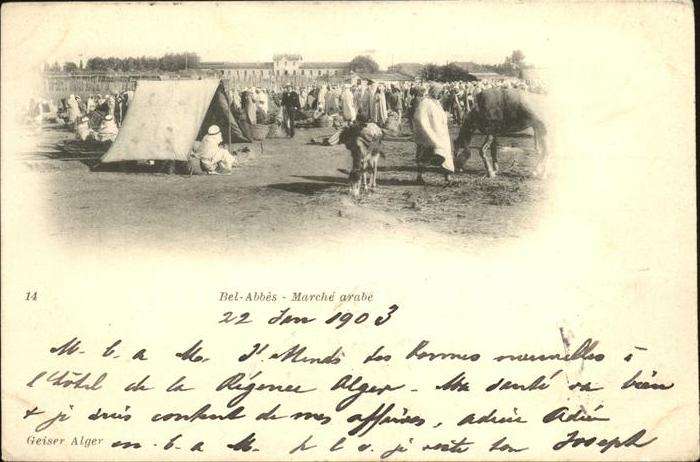 14
Bel-Abbès - Marché arabe
22 Jan 1903
M. b. a M. J'attends des bonnes nouvelles à
l'hôtel de la Régence Alger - Ma santé va bien
+ je suis content de mes affaires, adieu Adieu
Geiser Alger
m. b. a M. je reste ton Joseph